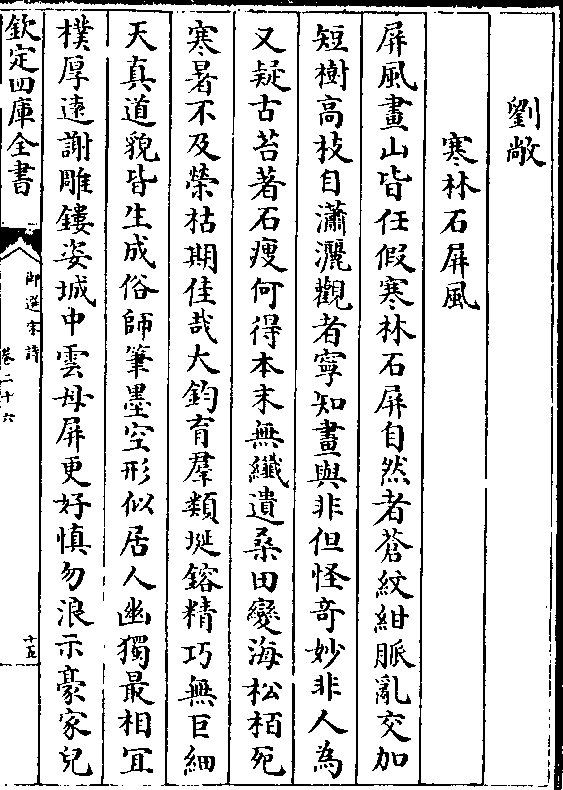 劉敞
寒林石屏風
屏風畫山皆任假寒林石屏自然者蒼紋紺脈亂交加
短樹高枝自瀟灑觀者寧知畫與非但怪奇妙非人為
又疑古苔著石瘦何得本末無纖遺桑田變海松栢死
寒暑不及榮枯期佳哉大鈞育羣類埏鎔精巧無巨細
天真道貌皆生成俗師筆墨空形似居人幽獨最相宜
樸厚遠謝雕鏤姿城中雲母屏更好慎勿浪示豪家兒
欽定四庫全書
御選宋詩
卷二十六
十五